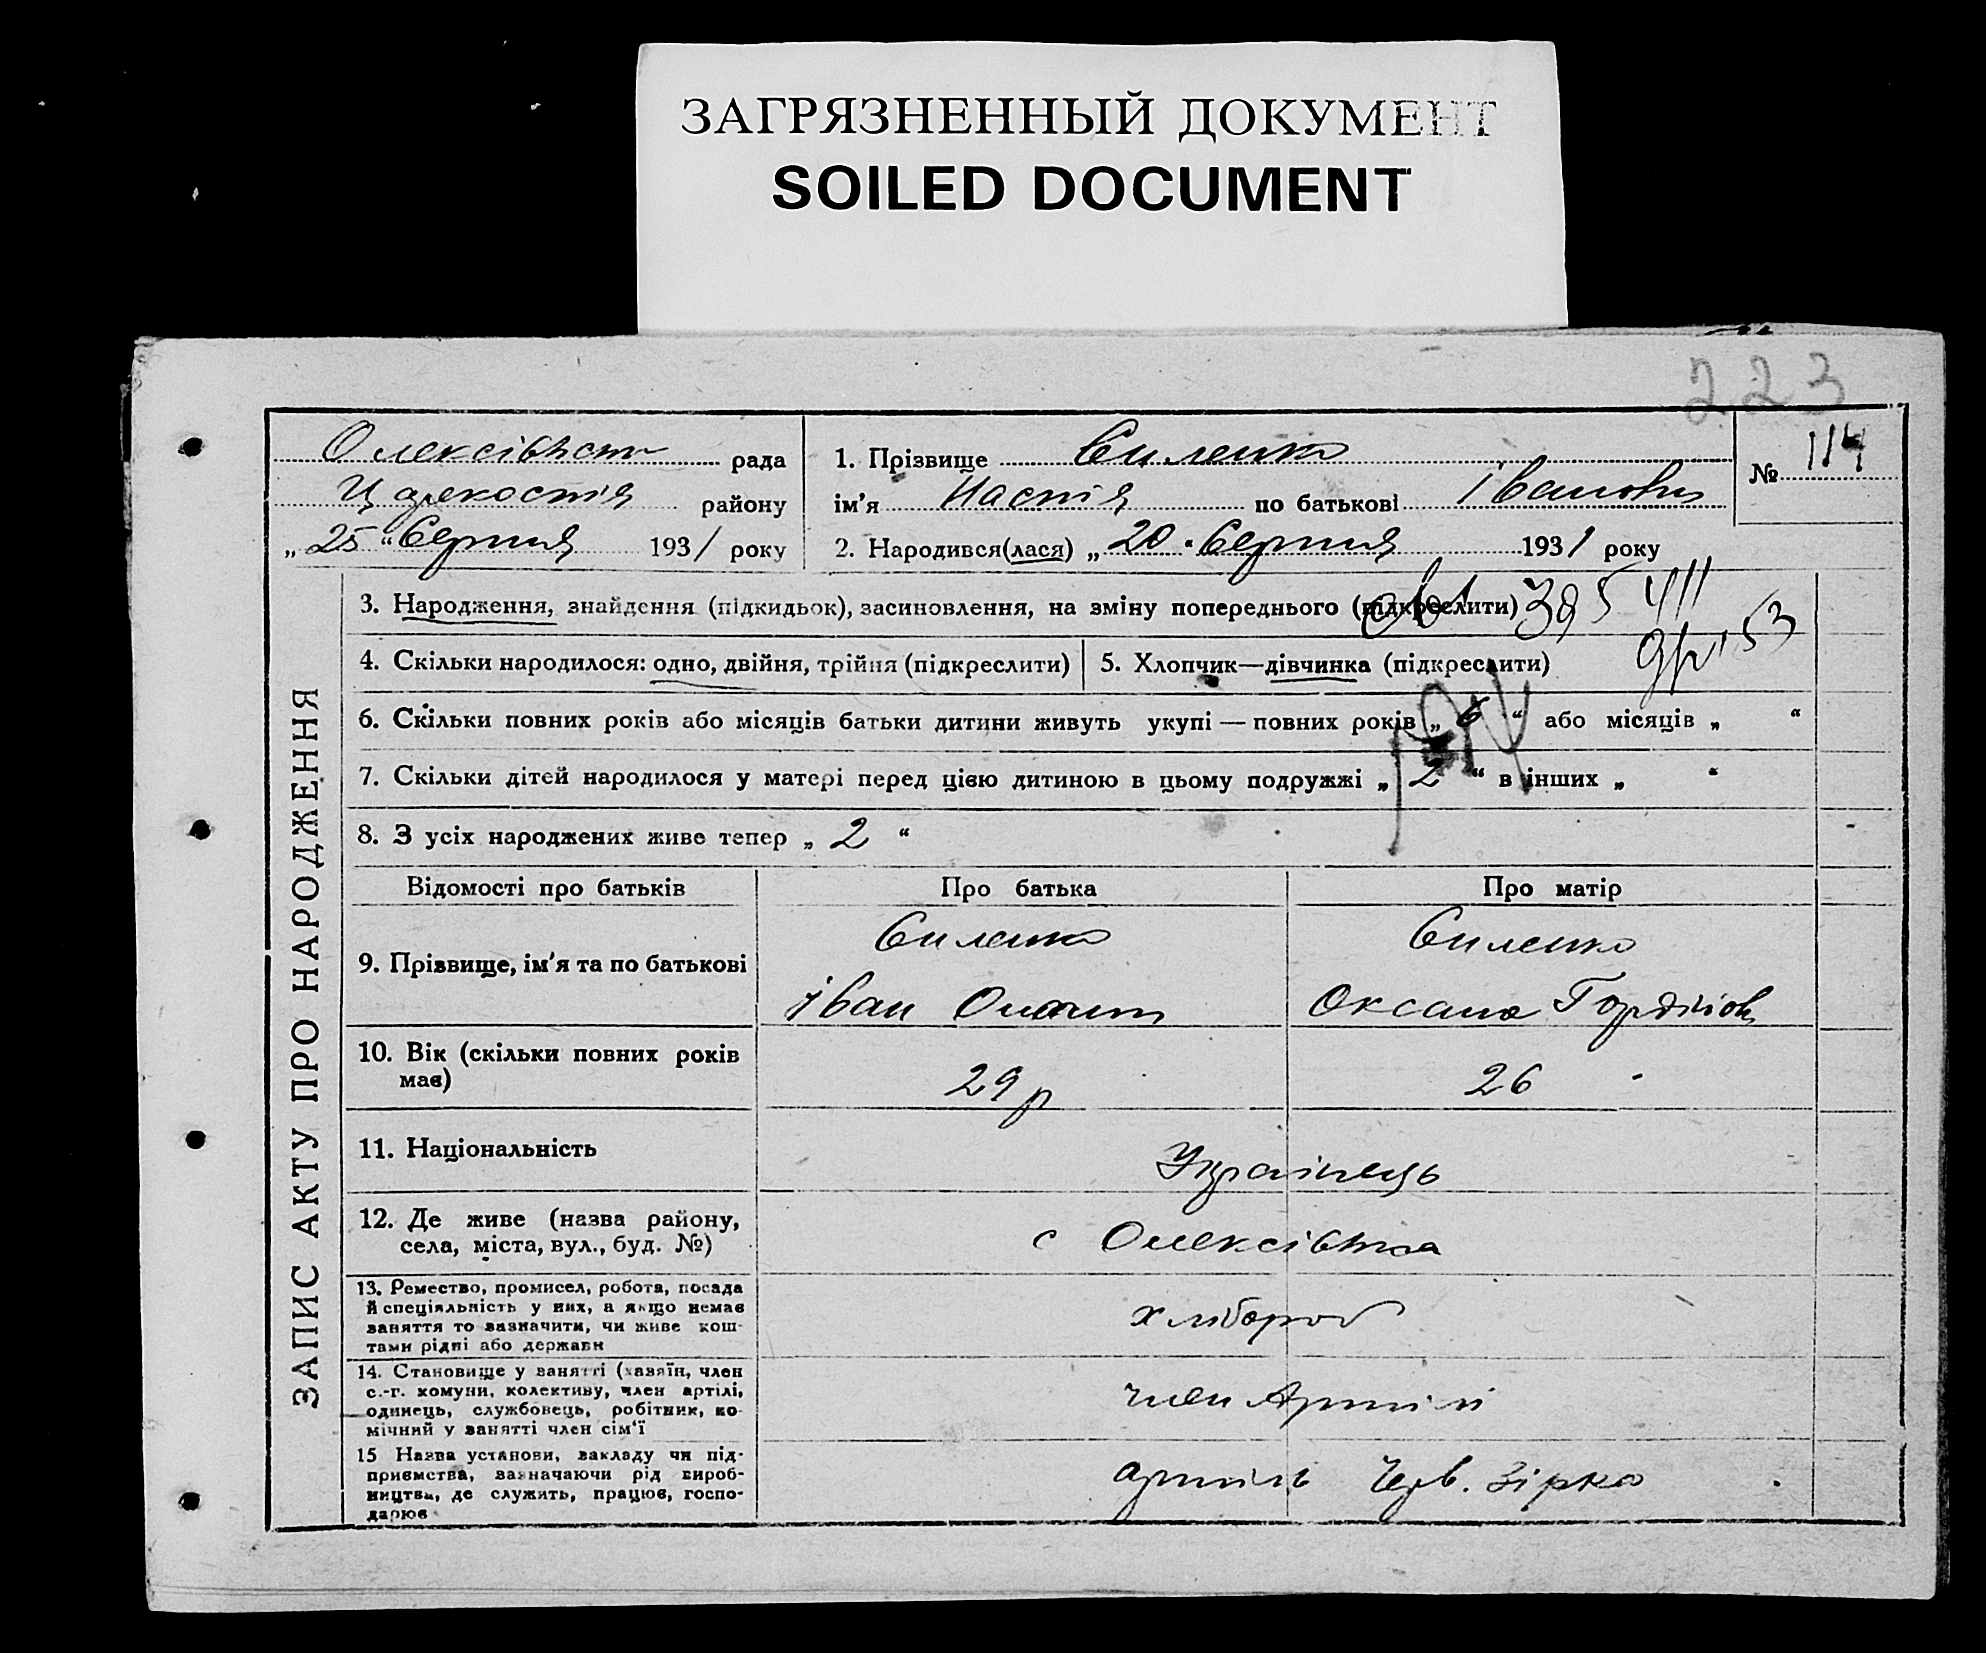 ЗАГРЯЗНЕННЫЙ ДОКУМЕНТ
SOILED DOCUMENT
223
рада
району
„ 25 “ Серпня 1931 року
1. Прізвище Силенко
ім'я Настія по батькові Івановн
2. Народився(лася) „ 20 " Серпня 1931 року
№ 114
ЗАПИС АКТУ ПРО НАРОДЖЕННЯ
3. Народження, знайдення (підкидьок), засиновлення, на зміну попереднього (підкреслити)
4. Скільки народилося: одно, двійня, трійня (підкреслити)
5. Хлопчик—дівчинка (підкреслити)
6. Скільки повних років або місяців батьки дитини живуть укупі — повних років „ 6 “ або місяців „ “
7. Скільки дітей народилося у матері перед цією дитиною в цьому подружжі „ 2 “ в інших „ “
8. З усіх народжених живе тепер „ 2 “
Відомості про батьків Про батька Про матір
9. Прізвище, ім'я та по батькові
Силенко
Іван
Силенко
Оксана
10. Вік (скільки повних років
має)
29 р
26
11. Національність
Українець
12. Де живе (назва району,
села, міста, вул., буд. №)
с Олексівка
13. Ремество, промисел, робота, посада
й спеціяльність у них, а якщо немає
заняття то зазначити, чи живе кош-
тами рідні або держави
хлібороб
14. Становище у занятті (хазяїн, член
с.-г. комуни, колективу, член артілі,
одинець, службовець, робітник, по-
мічний у занятті член сім'ї
член Артілі
15 Назва установи, закладу чи під-
приємства, зазначаючи рід вироб-
ництва, де служить, працює, госпо-
дарює
артіль Черв. Зірка